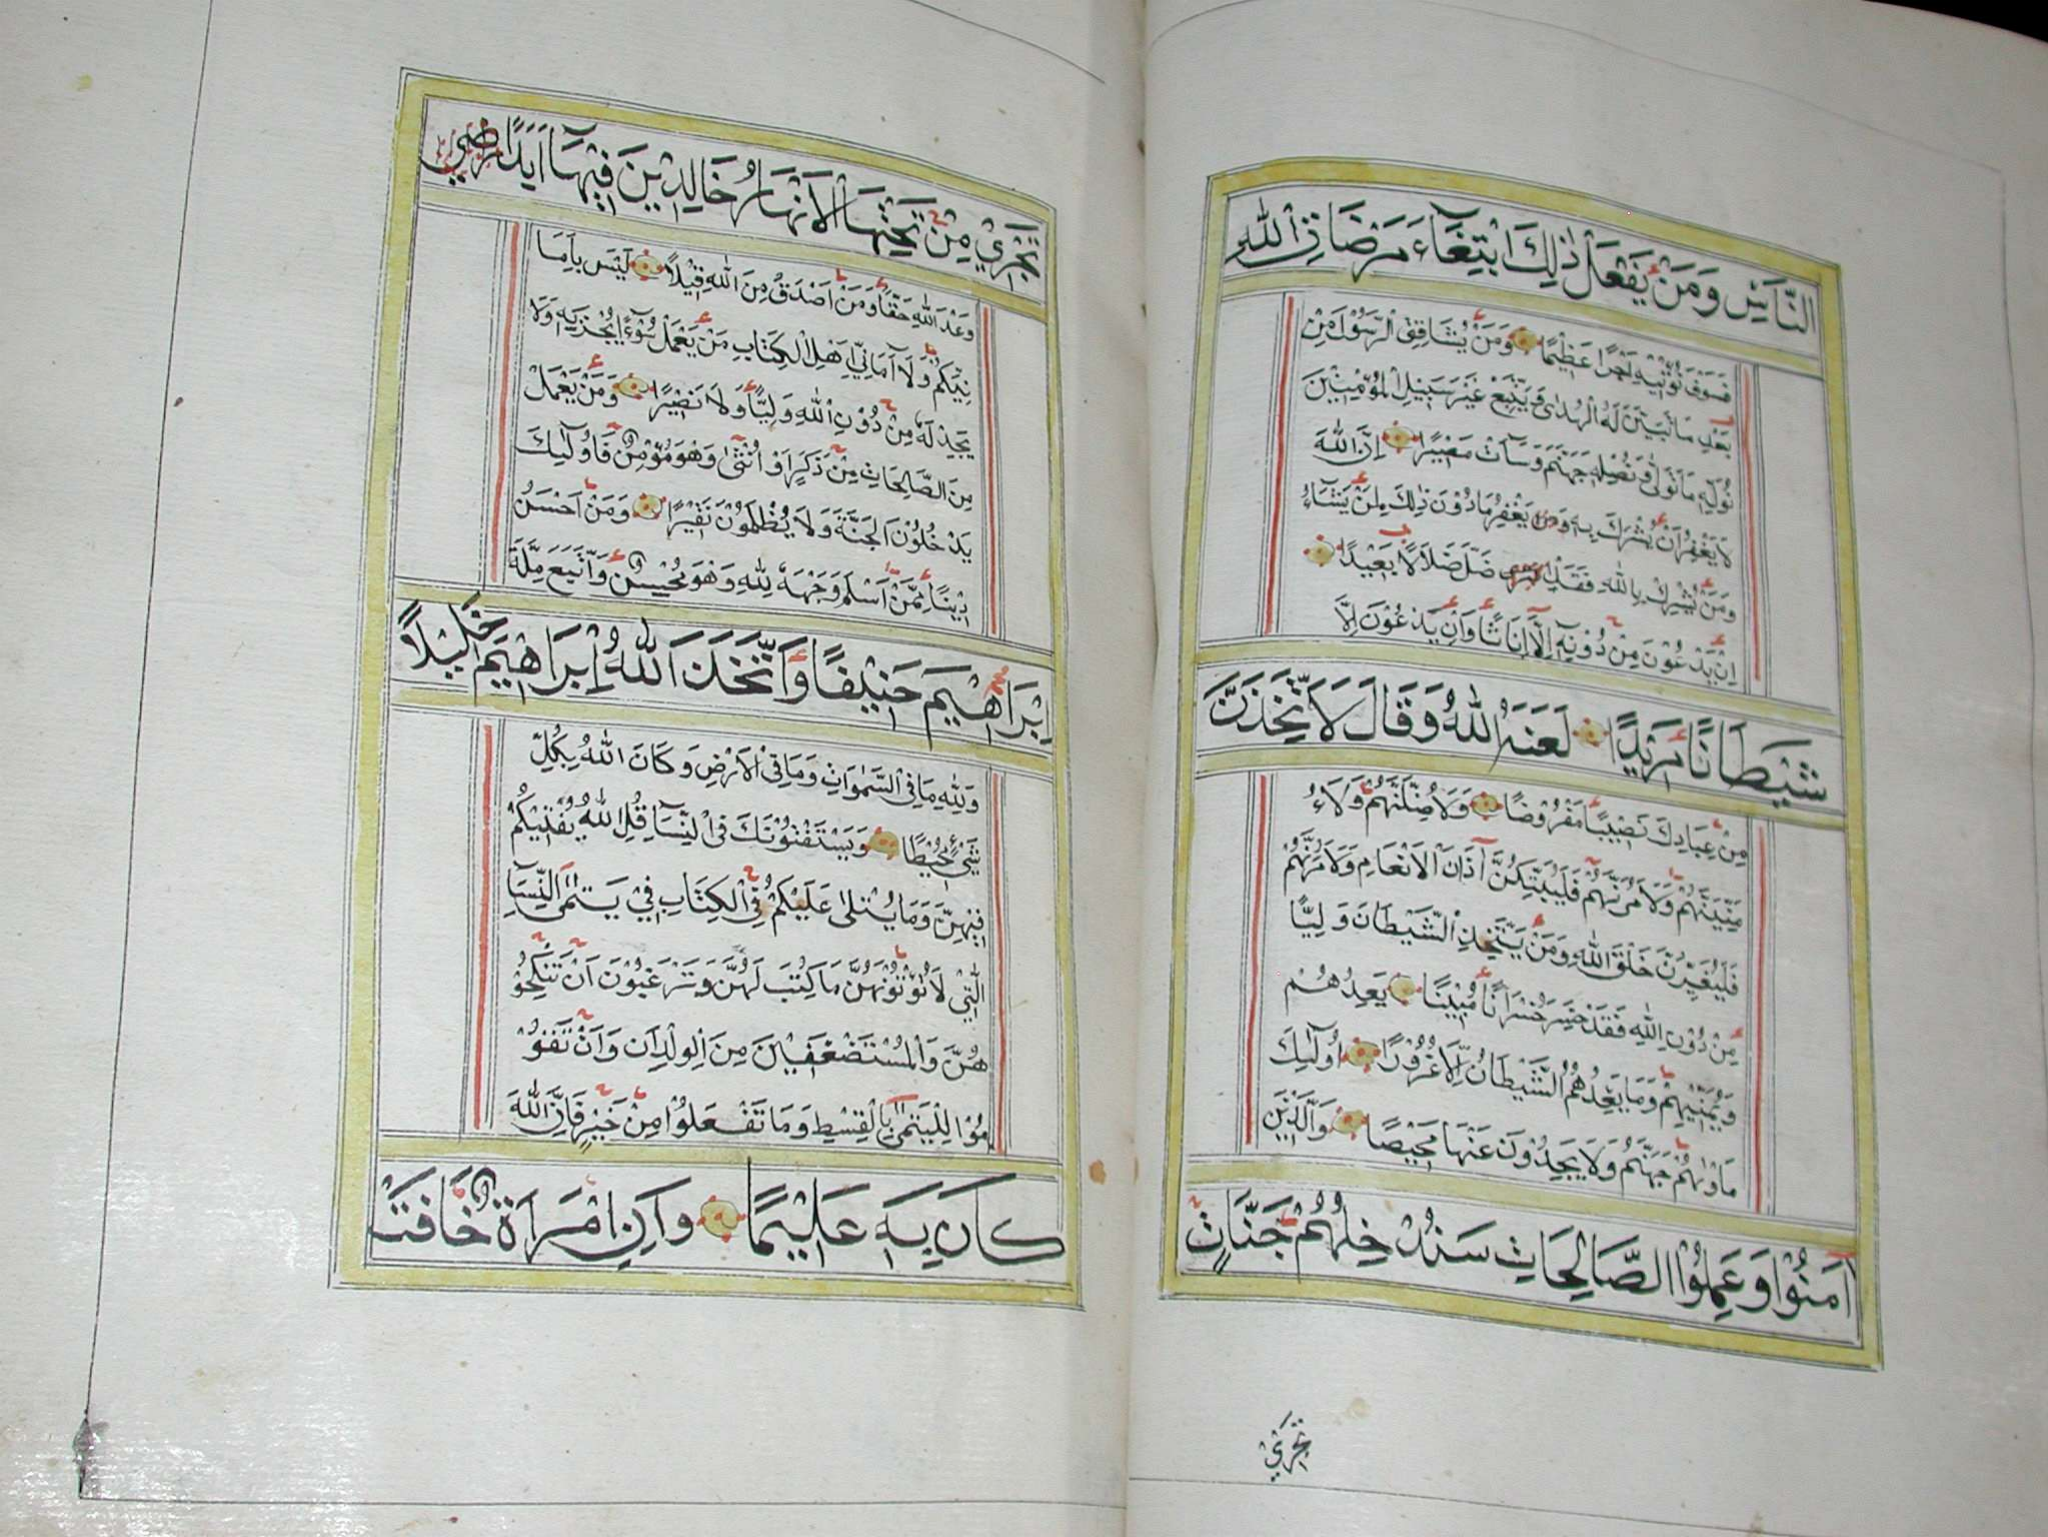 النَّاسِ وَمَنْ يَفْعَلْ ذٰلِكَ ابْتِغَآءَ مَرْضَاتِ اللّٰهِ
فَسَوْفَ نُؤْتِيْهِ اَجْرًا عَظِيْمًا وَمَنْ يُشَاقِقِ الرَّسُوْلَ مِنْ
بَعْدِ مَا تَبَيَّنَ لَهُ الْهُدٰى وَيَتَّبِعْ غَيْرَ سَبِيْلِ الْمُؤْمِنِيْنَ
نُوَلِّهِ مَا تَوَلّٰى وَنُصْلِهِ جَهَنَّمَ وَسَآءَتْ مَصِيْرًا اِنَّ اللّٰهَ
لَا يَغْفِرُ اَنْ يُشْرَكَ بِهِ وَيَغْفِرُ مَا دُوْنَ ذٰلِكَ لِمَنْ يَشَآءُ
وَمَنْ يُشْرِكْ بِاللّٰهِ فَقَدْ ضَلَّ ضَلَالًا بَعِيْدًا
اِنْ يَدْعُوْنَ مِنْ دُوْنِهِ اِلَّا اِنَاثًا وَاِنْ يَدْعُوْنَ اِلَّا
شَيْطَانًا مَرِيْدًا لَعَنَهُ اللّٰهُ وَقَالَ لَاَتَّخِذَنَّ
مِنْ عِبَادِكَ نَصِيْبًا مَفْرُوْضًا وَلَاُضِلَّنَّهُمْ وَلَاُ
مَنِّيَنَّهُمْ وَلَاٰمُرَنَّهُمْ فَلَيُبَتِّكُنَّ اٰذَانَ الْاَنْعَامِ وَلَاٰمُرَنَّهُمْ
فَلَيُغَيِّرُنَّ خَلْقَ اللّٰهِ وَمَنْ يَتَّخِذِ الشَّيْطَانَ وَلِيًّا
مِنْ دُوْنِ اللّٰهِ فَقَدْ خَسِرَ خُسْرَانًا مُبِيْنًا يَعِدُهُمْ
وَيُمَنِّيْهِمْ وَمَا يَعِدُهُمُ الشَّيْطَانُ اِلَّا غُرُوْرًا اُولٰٓئِكَ
مَاْوٰىهُمْ جَهَنَّمُ وَلَا يَجِدُوْنَ عَنْهَا مَحِيْصًا وَالَّذِيْنَ
اٰمَنُوْا وَعَمِلُوا الصَّالِحَاتِ سَنُدْخِلُهُمْ جَنَّاتٍ
تَجْرِيْ
تَجْرِيْ مِنْ تَحْتِهَا الْاَنْهَارُ خَالِدِيْنَ فِيْهَا اَبَدًا
وَعْدَ اللّٰهِ حَقًّا وَمَنْ اَصْدَقُ مِنَ اللّٰهِ قِيْلًا لَيْسَ بِاَمَا
نِيِّكُمْ وَلَا اَمَانِيِّ اَهْلِ الْكِتَابِ مَنْ يَعْمَلْ سُوْءًا يُجْزَ بِهِ وَلَا
يَجِدْ لَهُ مِنْ دُوْنِ اللّٰهِ وَلِيًّا وَلَا نَصِيْرًا وَمَنْ يَعْمَلْ
مِنَ الصَّالِحَاتِ مِنْ ذَكَرٍ اَوْ اُنْثٰى وَهُوَ مُؤْمِنٌ فَاُولٰٓئِكَ
يَدْخُلُوْنَ الْجَنَّةَ وَلَا يُظْلَمُوْنَ نَقِيْرًا وَمَنْ اَحْسَنُ
دِيْنًا مِمَّنْ اَسْلَمَ وَجْهَهُ لِلّٰهِ وَهُوَ مُحْسِنٌ وَاتَّبَعَ مِلَّةَ
اِبْرَاهِيْمَ حَنِيْفًا وَاتَّخَذَ اللّٰهُ اِبْرَاهِيْمَ خَلِيْلًا
وَلِلّٰهِ مَا فِي السَّمٰوَاتِ وَمَا فِي الْاَرْضِ وَكَانَ اللّٰهُ بِكُلِّ
شَيْءٍ مُحِيْطًا وَيَسْتَفْتُوْنَكَ فِي النِّسَآءِ قُلِ اللّٰهُ يُفْتِيْكُمْ
فِيْهِنَّ وَمَا يُتْلٰى عَلَيْكُمْ فِي الْكِتَابِ فِيْ يَتٰمَى النِّسَآءِ
الّٰتِيْ لَا تُؤْتُوْنَهُنَّ مَا كُتِبَ لَهُنَّ وَتَرْغَبُوْنَ اَنْ تَنْكِحُوْ
هُنَّ وَالْمُسْتَضْعَفِيْنَ مِنَ الْوِلْدَانِ وَاَنْ تَقُوْ
مُوْا لِلْيَتٰمٰى بِالْقِسْطِ وَمَا تَفْعَلُوْا مِنْ خَيْرٍ فَاِنَّ اللّٰهَ
كَانَ بِهِ عَلِيْمًا وَاِنِ امْرَاَةٌ خَافَتْ